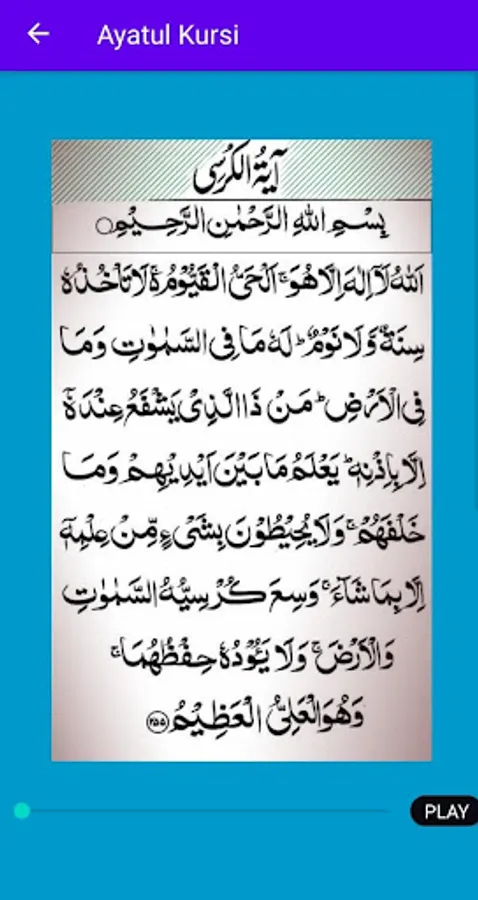 Ayatul Kursi
آيَةُ الْكُرْسِی
بِسْمِ اللّٰهِ الرَّحْمٰنِ الرَّحِيْمِ○
اَللّٰهُ لَآ اِلٰهَ اِلَّا هُوَ ۚ اَلْحَیُّ الْقَيُّوْمُ ۚ۬ لَا تَاْخُذُهٗ
سِنَةٌ وَّلَا نَوْمٌ ؕ لَهٗ مَا فِی السَّمٰوٰتِ وَمَا
فِی الْاَرْضِ ؕ مَنْ ذَا الَّذِیْ يَشْفَعُ عِنْدَهٗٓ
اِلَّا بِاِذْنِهٖ ؕ يَعْلَمُ مَا بَيْنَ اَيْدِيْهِمْ وَمَا
خَلْفَهُمْ ۚ وَلَا يُحِيْطُوْنَ بِشَیْءٍ مِّنْ عِلْمِهٖٓ
اِلَّا بِمَا شَآءَ ۚ وَسِعَ كُرْسِيُّهُ السَّمٰوٰتِ
وَالْاَرْضَ ۚ وَلَا يَـُٔوْدُهٗ حِفْظُهُمَا ۚ
وَهُوَ الْعَلِیُّ الْعَظِيْمُ ﴿۲۵۵﴾
PLAY